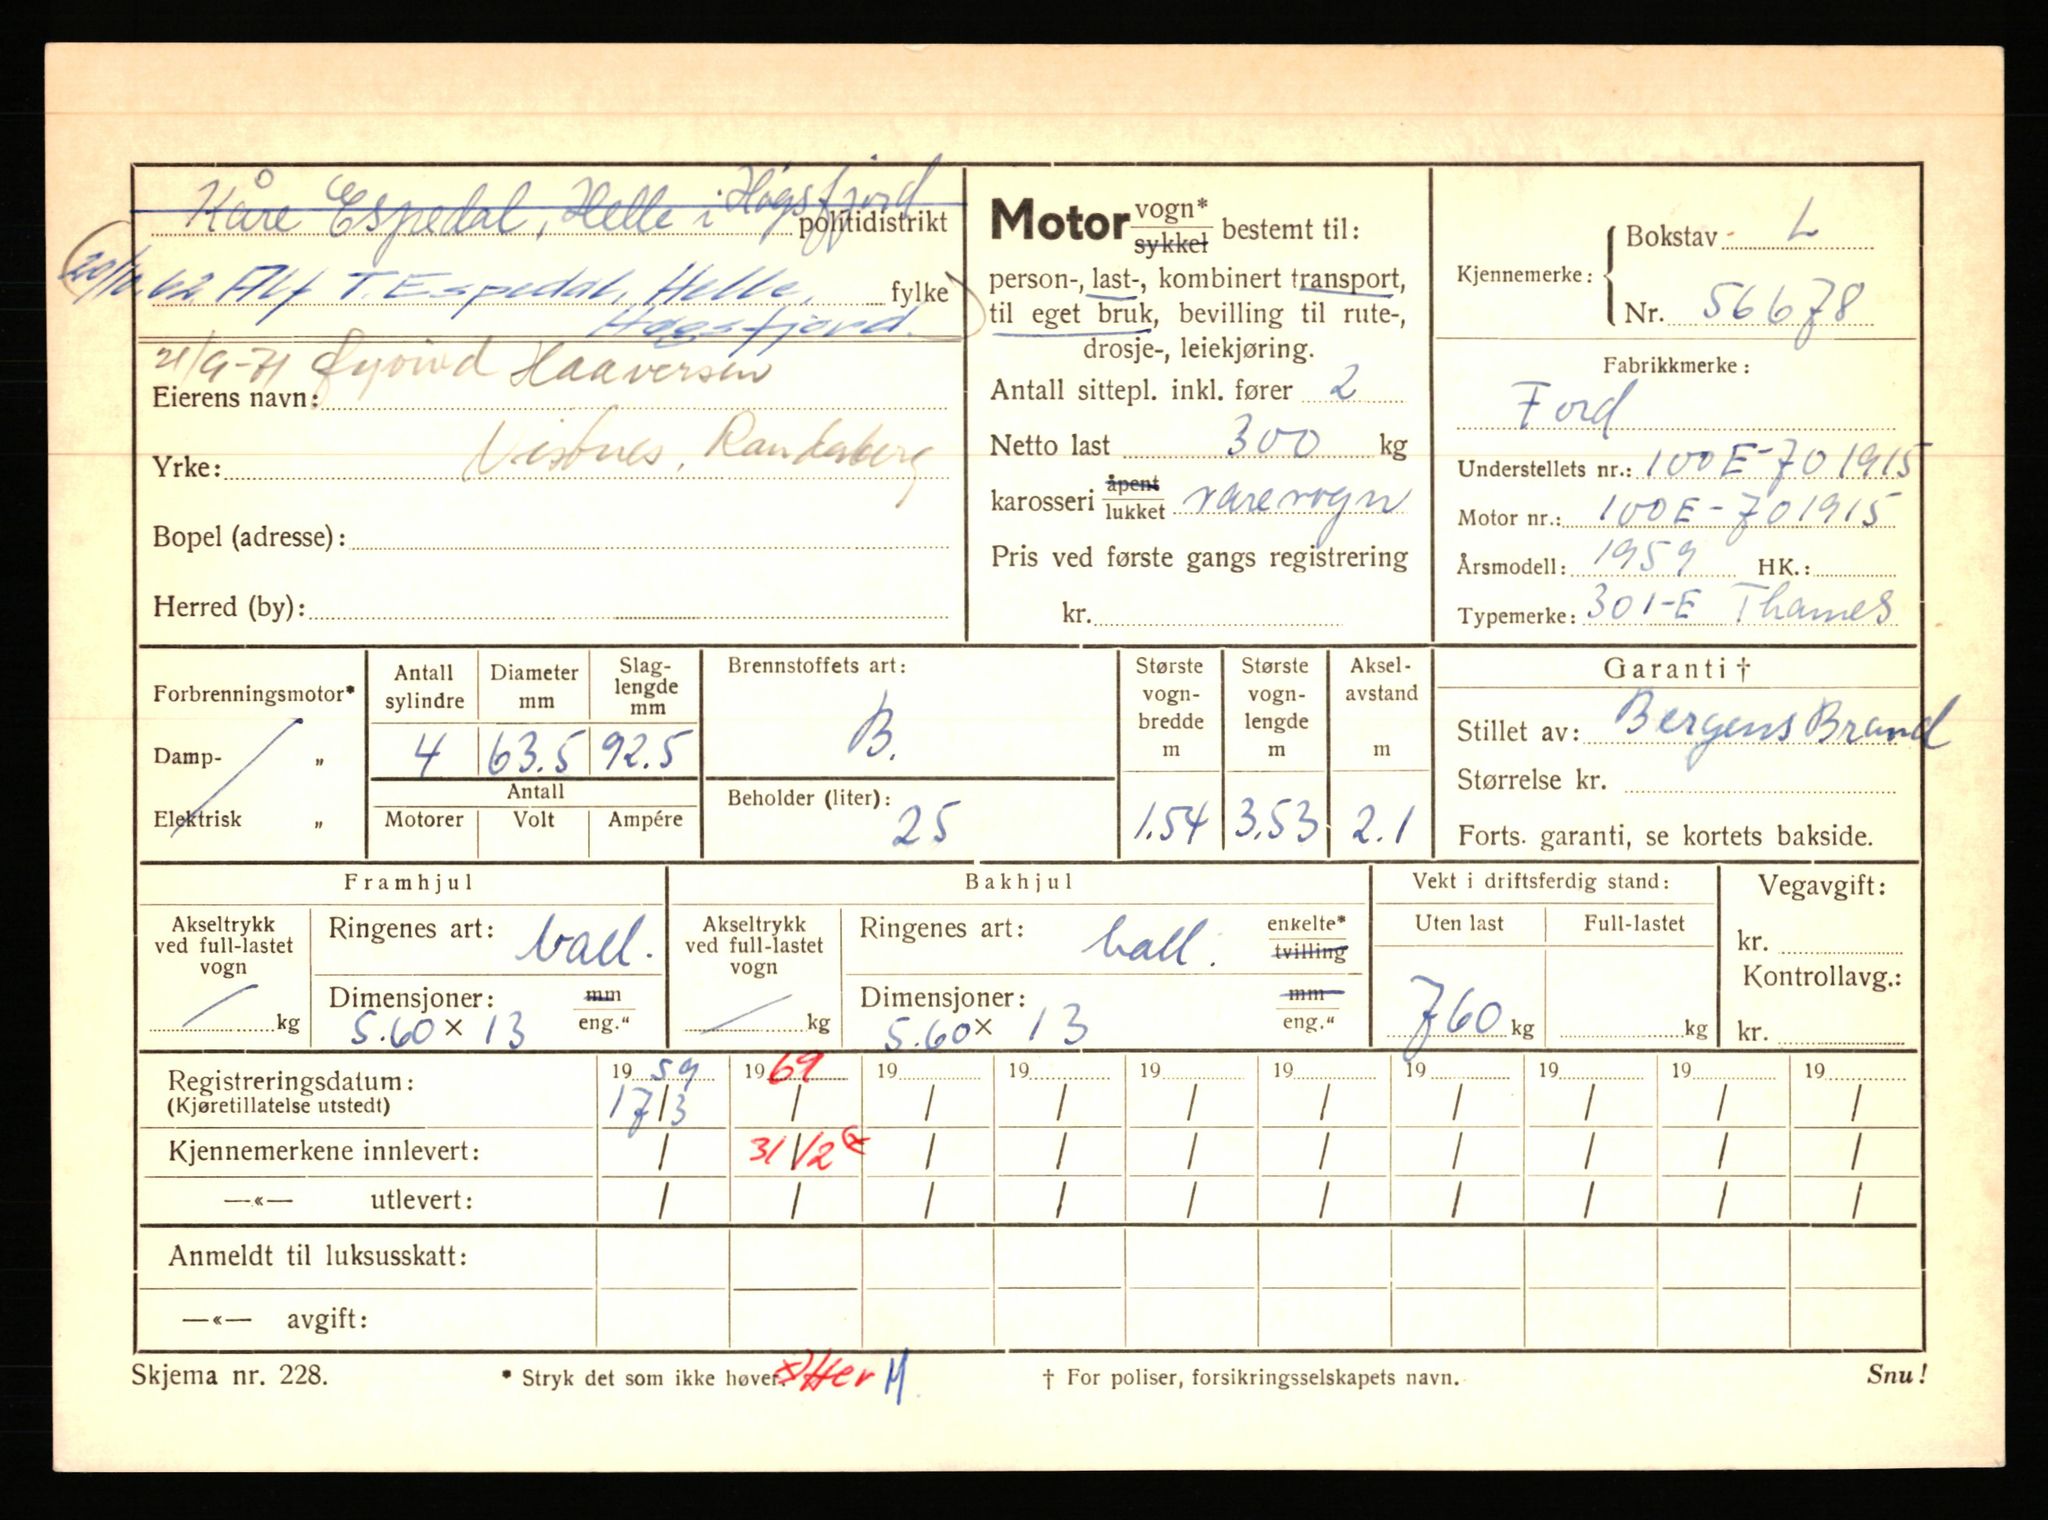 Kåre Espedal, Helle i Høgsfjord
politidistrikt
20/10.62 Alf T. Espedal, Helle, fylke
Høgsfjord.
21/9-71 Øyvind Haaversen
Eierens navn:
Visnes, Randaberg
Yrke:
Bopel (adresse):
Herred (by):
Motor vogn* sykkel bestemt til:
person-, last-, kombinert transport,
til eget bruk, bevilling til rute-,
drosje-, leiekjøring.
Antall sittepl. inkl. fører 2
Netto last 300 kg
karosseri åpent lukket varevogn
Pris ved første gangs registrering
kr.
Kjennemerke: Bokstav L
Nr. 56678
Fabrikkmerke:
Ford
Understellets nr.: 100E-701915
Motor nr.: 100E-701915
Årsmodell: 1959 HK.:
Typemerke: 301-E Thames
Forbrenningsmotor*
Damp- „
Elektrisk „
Antall sylindre
4
Diameter mm
63.5
Slag-lengde mm
92.5
Antall
Motorer Volt Ampére
Brennstoffets art:
B.
Beholder (liter):
25
Største vogn-bredde m
1.54
Største vogn-lengde m
3.53
Aksel-avstand m
2.1
Garanti †
Stillet av: Bergens Brand
Størrelse kr.
Forts. garanti, se kortets bakside.
Framhjul
Akseltrykk
ved full-lastet
vogn
kg
Ringenes art: ball.
Dimensjoner: mm
5.60 x 13 eng."
Bakhjul
Akseltrykk
ved full-lastet
vogn
kg
Ringenes art: ball. enkelte* tvilling
Dimensjoner: mm
5.60 x 13 eng."
Vekt i driftsferdig stand:
Uten last Full-lastet
760 kg kg
Vegavgift:
kr.
Kontrollavg.:
kr.
Registreringsdatum: 19 59 19 69 19 19 19 19 19 19 19 19
(Kjøretillatelse utstedt) 17/3 / / / / / / / / /
Kjennemerkene innlevert: / 31/12 x / / / / / / / /
—«— utlevert: / / / / / / / / / /
Anmeldt til luksusskatt:
—«— avgift:
Skjema nr. 228. * Stryk det som ikke høver. † For poliser, forsikringsselskapets navn. Snu!